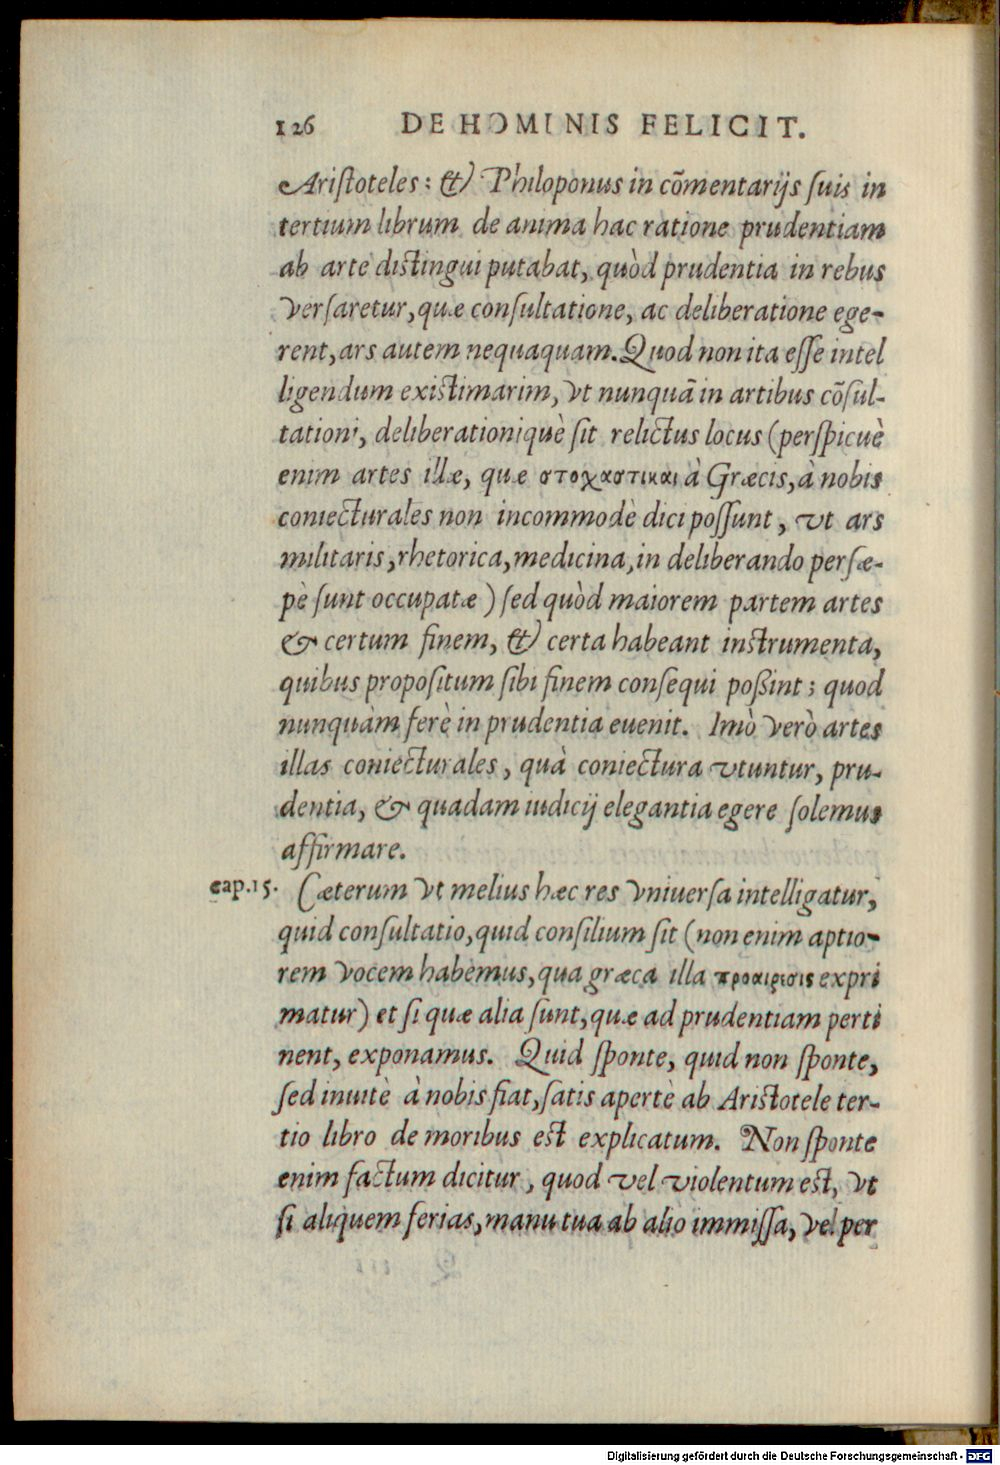 126 DE HOMINIS FELICIT.
Ariſtoteles: & Philoponus in cõmentarijs ſuis in
tertium librum de anima hac ratione prudentiam
ab arte diſtingui putabat, quòd prudentia in rebus
verſaretur, quæ conſultatione, ac deliberatione ege-
rent, ars autem nequaquam. Quod non ita eſſe intel
ligendum exiſtimarim, vt nunquã in artibus cõſul-
tationi, deliberationiquè ſit relictus locus (perſpicuè
enim artes illæ, quæ στοχαστικαι à Græcis, à nobis
coniecturales non incommodè dici poſſunt, vt ars
militaris, rhetorica, medicina, in deliberando perſæ-
pè ſunt occupatæ) ſed quòd maiorem partem artes
& certum finem, & certa habeant inſtrumenta,
quibus propoſitum ſibi finem conſequi poßint; quod
nunquàm ferè in prudentia euenit. Imò verò artes
illas coniecturales, quà coniectura vtuntur, pru-
dentia, & quadam iudicij elegantia egere ſolemus
affirmare.
cap.15. Cæterum vt melius hæc res vniuerſa intelligatur,
quid conſultatio, quid conſilium ſit (non enim aptio-
rem vocem habemus, qua græca illa προαιρεσις expri
matur) et ſi quæ alia ſunt, quæ ad prudentiam perti
nent, exponamus. Quid ſponte, quid non ſponte,
ſed inuitè à nobis fiat, ſatis apertè ab Ariſtotele ter-
tio libro de moribus eſt explicatum. Non ſponte
enim factum dicitur, quod vel violentum eſt, vt
ſi aliquem ferias, manu tua ab alio immiſſa, vel per
Digitalisierung gefördert durch die Deutsche Forschungsgemeinschaft - DFG